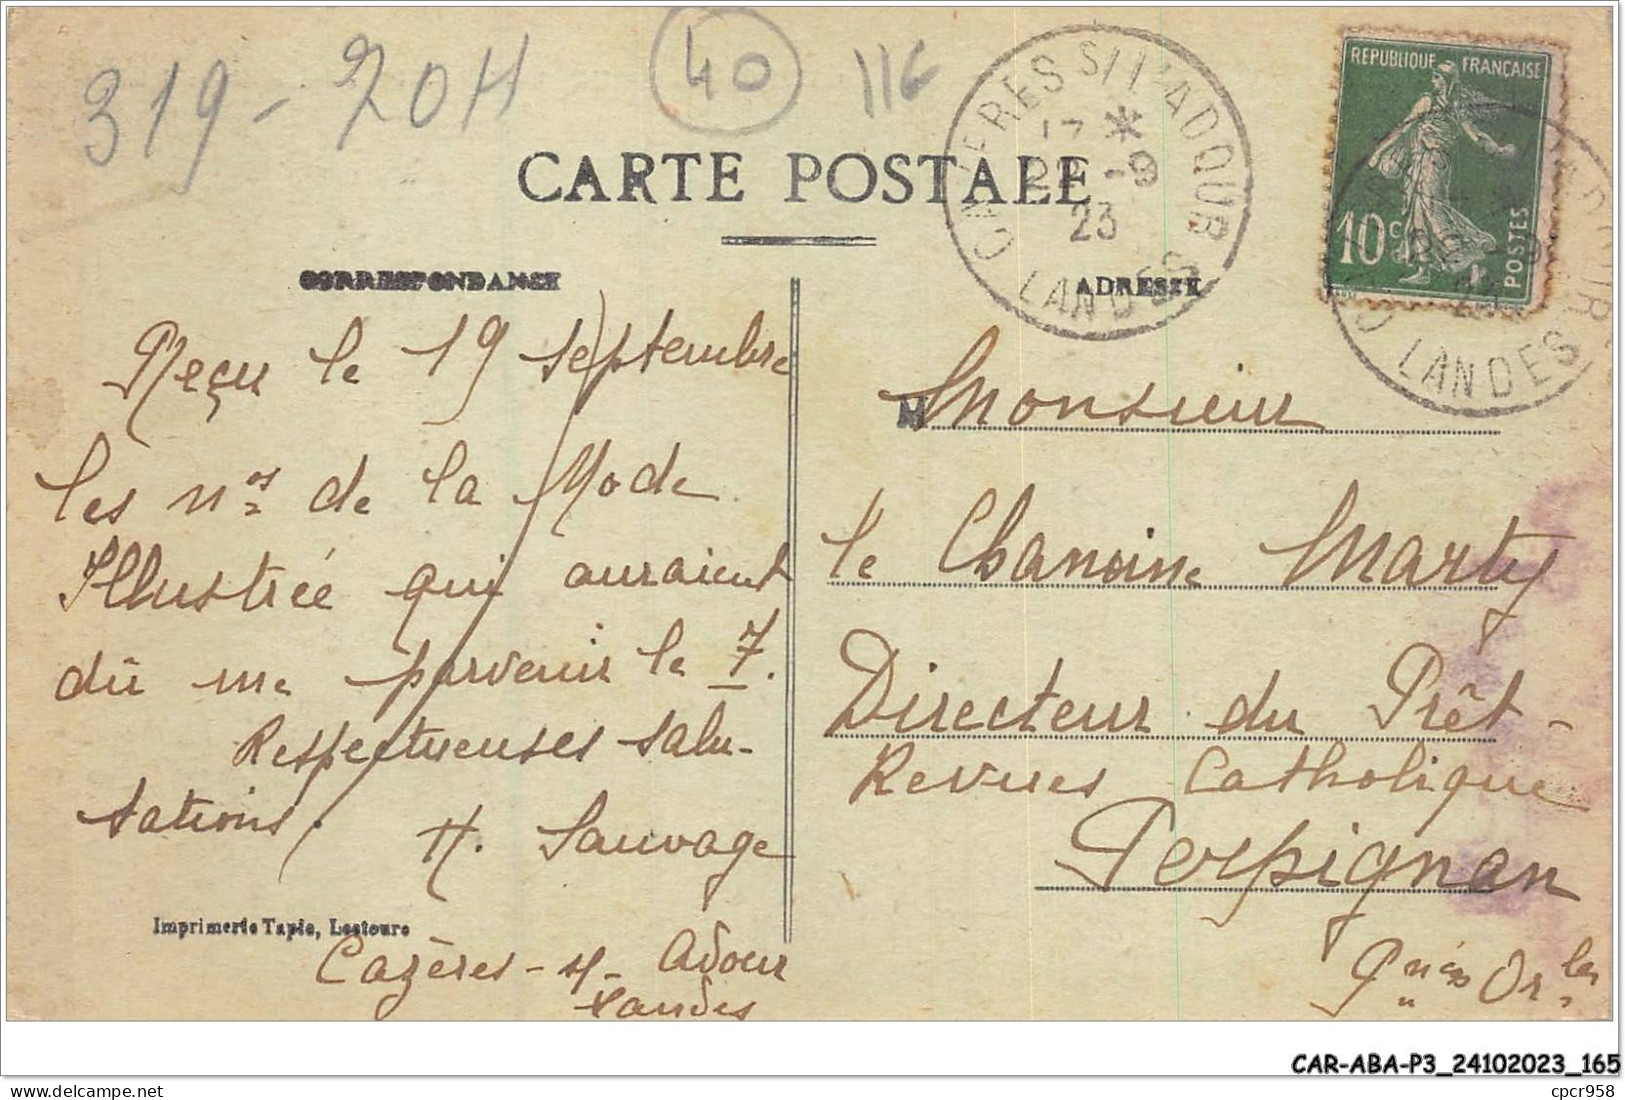 319-20H
40
116
CARTE POSTALE
CAZERES S/L'ADOUR
17 *
22 -9
23
LANDES
REPUBLIQUE FRANÇAISE
10 c
POSTES
LANDES
CORRESPONDANCE
Reçu le 19 Septembre
les nos de la Mode
Illustrée qui auraient
dû me parvenir le 7.
Respectueuses salu-
tations.
H. Sauvage
Imprimerie Tapie, Lectoure
Cazères-s/-Adour
Landes
ADRESSE
M
Monsieur
le Chanoine Marty
Directeur du Prêt-
Revues Catholique
Perpignan
Pnées Orles
CAR-ABA-P3_24102023_165
cpcr958